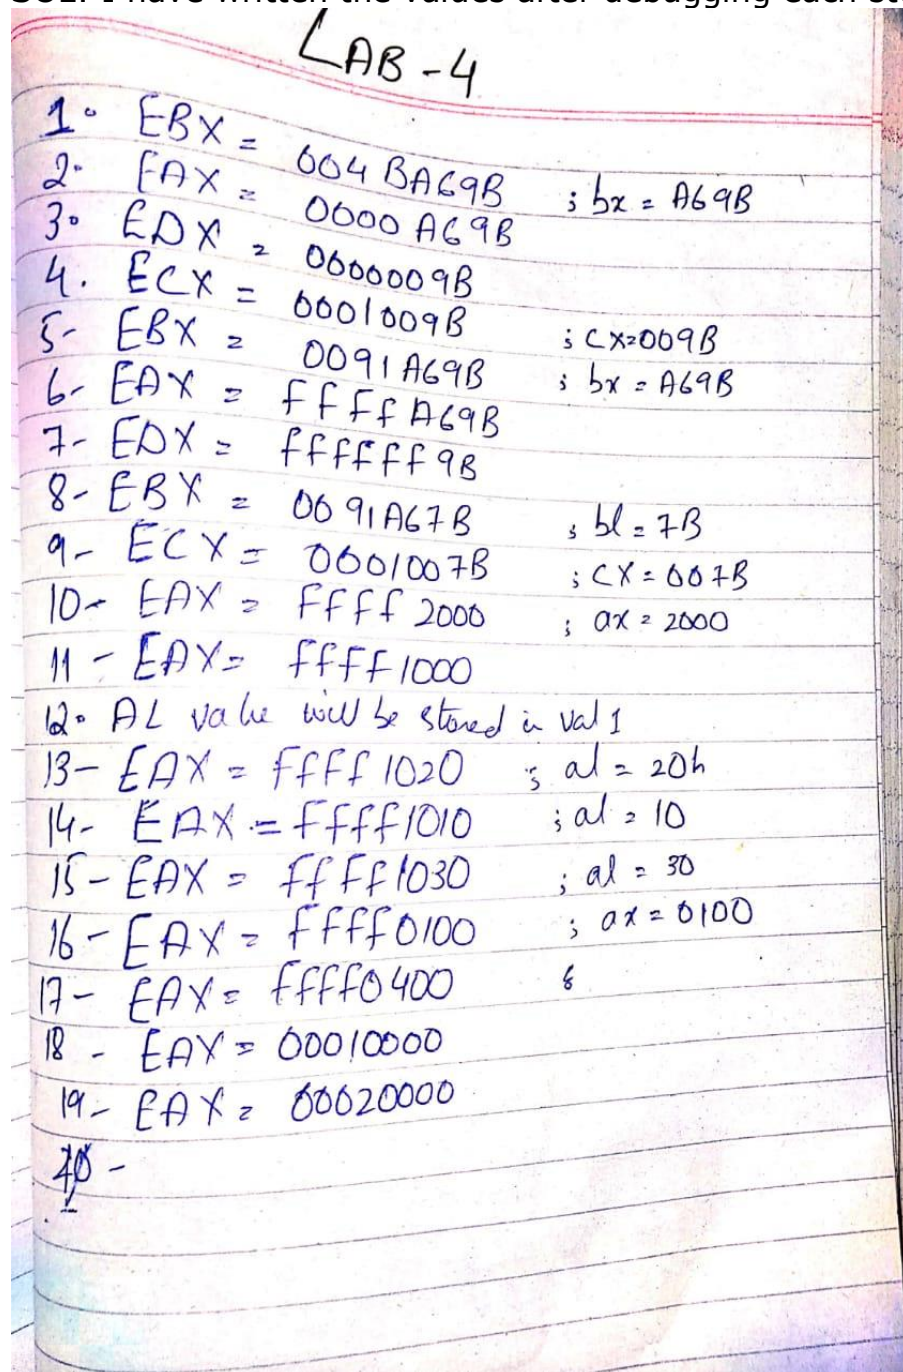 LAB-4
1. EBX = 004BA69B ; bx = A69B
2. EAX = 0000A69B
3. EDX = 0000009B
4. ECX = 0001009B ; CX=009B
5- EBX = 0091A69B ; bx = A69B
6- EAX = ffffA69B
7- EDX = ffffff9B
8- EBX = 0091A67B ; bl = 7B
9- ECX = 0001007B ; CX = 007B
10- EAX = FFFF2000 ; ax = 2000
11- EAX= ffff1000
12. AL value will be stored in val 1
13- EAX = FFFF1020 ; al = 20h
14- EAX = FFFF1010 ; al = 10
15- EAX = ffff1030 ; al = 30
16- EAX = ffff0100 ; ax = 0100
17- EAX= ffff0400 ;
18- EAX = 00010000
19- EAX = 00020000